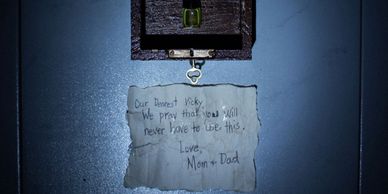 Our Dearest Vicky,
We pray that you will
never have to use this.
Love,
Mom & Dad